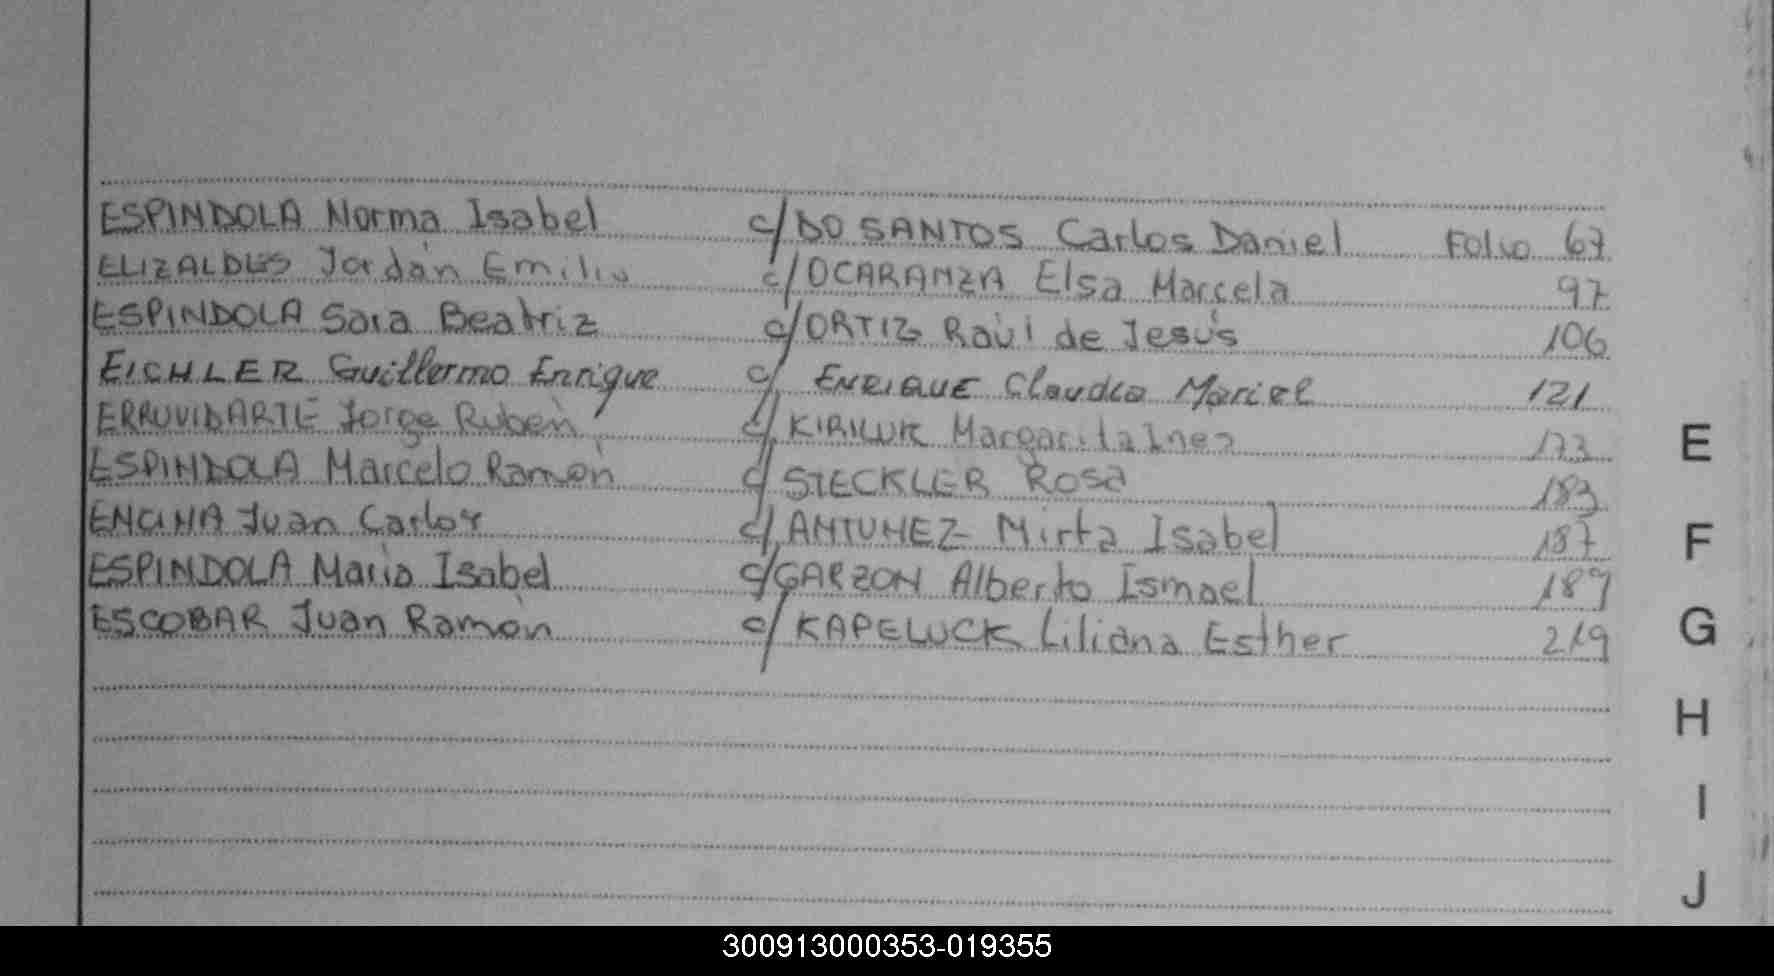 ESPINDOLA Norma Isabel c/ DO SANTOS Carlos Daniel Folio 67
ELIZALDES Jordán Emilio c/ OCARANZA Elsa Marcela 97
ESPINDOLA Sara Beatriz c/ ORTIZ Raúl de Jesús 106
EICHLER Guillermo Enrique c/ ENRIQUE Claudia Mariel 121
ERRUVIDARTE Jorge Rubén c/ KIRILUK Margarita Ines 173
ESPINDOLA Marcelo Ramón c/ STECKLER Rosa 183
ENCINA Juan Carlos c/ ANTUNEZ Mirta Isabel 187
ESPINDOLA María Isabel c/ GARZON Alberto Ismael 189
ESCOBAR Juan Ramón c/ KAPELUCK Liliana Esther 219
E
F
G
H
I
J
300913000353-019355